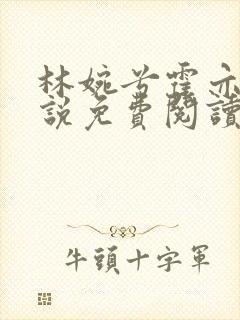 林婉兮霍亦
說免費閱讀
牛頭十字軍